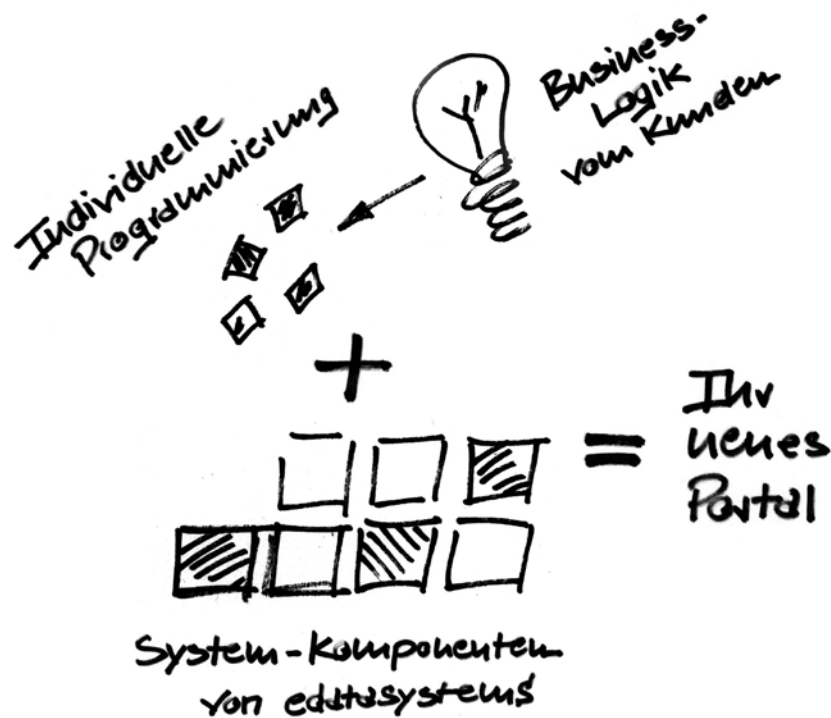 Individuelle
Programmierung
Business-
Logik
vom Kunden
+
=
Ihr
neues
Portal
System-Komponenten
von edatasystems